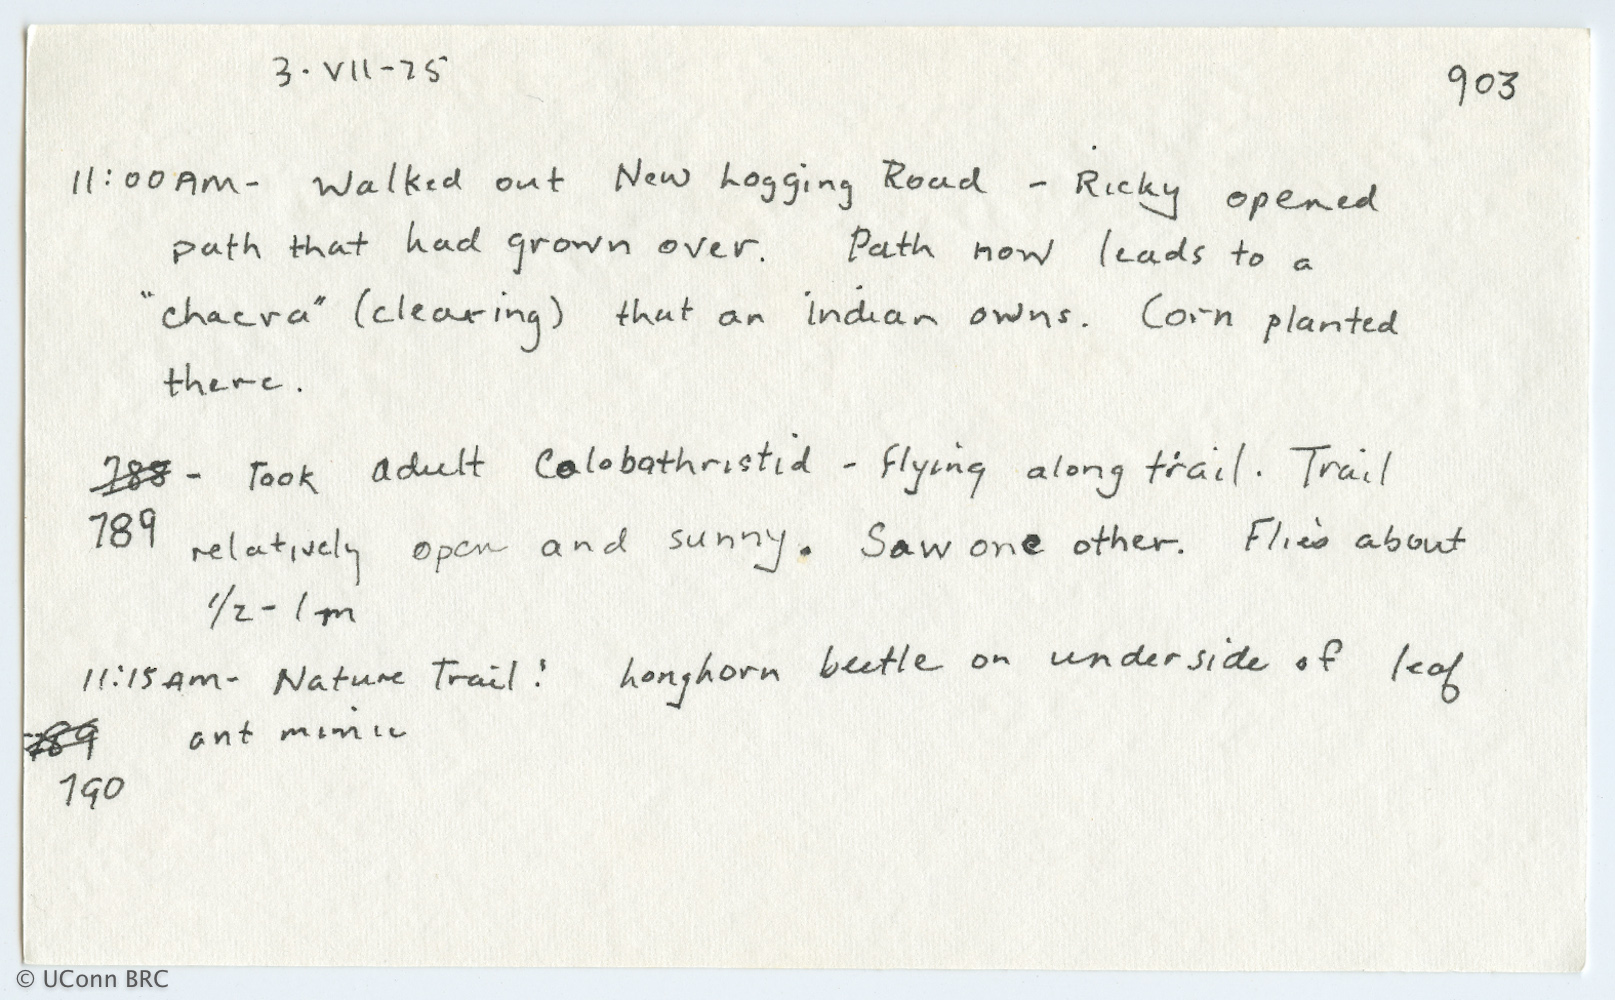 3·VII-75
903
11:00 AM- Walked out New Logging Road - Ricky opened
path that had grown over. Path now leads to a
"chacra" (clearing) that an indian owns. Corn planted
there.
788 - Took adult Colobathristid - flying along trail. Trail
789 relatively open and sunny. Saw one other. Flies about
1/2 - 1 m
11:15 AM- Nature Trail: Longhorn beetle on underside of leaf
789 ant mimic
790
© UConn BRC